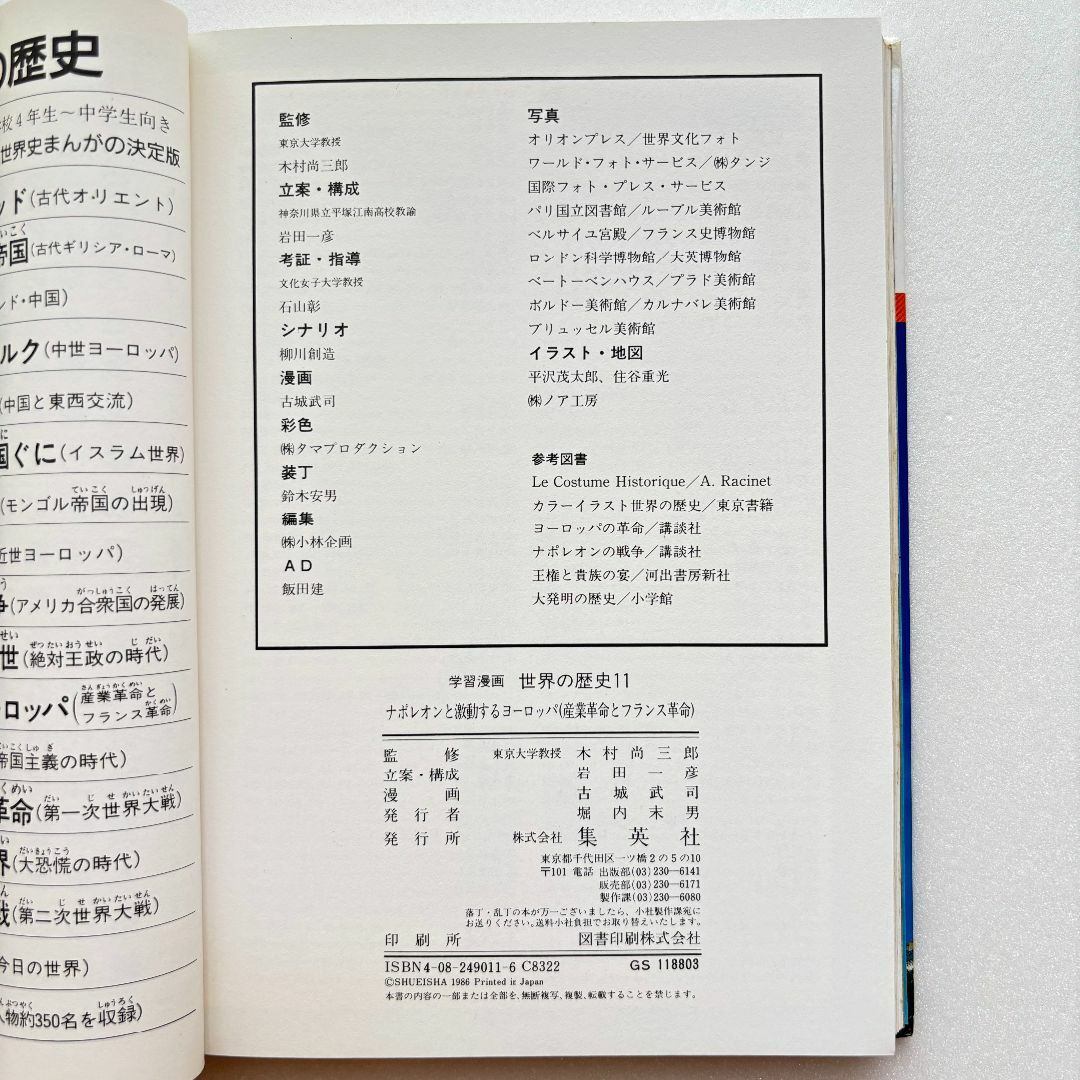 の歴史
校4年生〜中学生向き
世界史まんがの決定版
ッド(古代オリエント)
いこく
帝国(古代ギリシア・ローマ)
ンド・中国)
ルク(中世ヨーロッパ)
(中国と東西交流)
に
国ぐに(イスラム世界)
ていこく しゅつげん
(モンゴル帝国の出現)
近世ヨーロッパ)
う がっしゅうこく はってん
争(アメリカ合衆国の発展)
せい ぜったいおうせい じだい
世(絶対王政の時代)
さんぎょうかくめい
ーロッパ(産業革命と
かくめい
フランス革命)
ていこくしゅぎ
帝国主義の時代)
くめい だい じ せかいたいせん
革命(第一次世界大戦)
い だいきょうこう
界(大恐慌の時代)
ん だい じ せかいたいせん
戦(第二次世界大戦)
今日の世界)
んぶつやく しゅうろく
人物約350名を収録)
監修
東京大学教授
木村尚三郎
立案・構成
神奈川県立平塚江南高校教諭
岩田一彦
考証・指導
文化女子大学教授
石山彰
シナリオ
柳川創造
漫画
古城武司
彩色
㈱タマプロダクション
装丁
鈴木安男
編集
㈱小林企画
AD
飯田建
写真
オリオンプレス/世界文化フォト
ワールド・フォト・サービス/㈱タンジ
国際フォト・プレス・サービス
パリ国立図書館/ルーブル美術館
ベルサイユ宮殿/フランス史博物館
ロンドン科学博物館/大英博物館
ベートーベンハウス/プラド美術館
ボルドー美術館/カルナバレ美術館
ブリュッセル美術館
イラスト・地図
平沢茂太郎、住谷重光
㈱ノア工房
参考図書
Le Costume Historique/A. Racinet
カラーイラスト世界の歴史/東京書籍
ヨーロッパの革命/講談社
ナポレオンの戦争/講談社
王権と貴族の宴/河出書房新社
大発明の歴史/小学館
学習漫画 世界の歴史11
ナポレオンと激動するヨーロッパ(産業革命とフランス革命)
監修 東京大学教授 木村尚三郎
立案・構成 岩田一彦
漫画 古城武司
発行者 堀内末男
発行所 株式会社 集英社
東京都千代田区一ツ橋2の5の10
〒101 電話 出版部(03)230―6141
販売部(03)230―6171
製作課(03)230―6080
落丁・乱丁の本が万一ございましたら、小社製作課宛に
お送りください。送料小社負担でお取り替えいたします。
印刷所 図書印刷株式会社
ISBN4-08-249011-6 C8322 GS 118803
©SHUEISHA 1986 Printed in Japan
本書の内容の一部または全部を、無断複写、複製、転載することを禁じます。